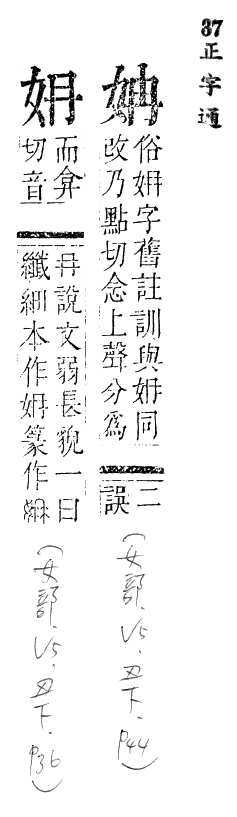 37正字通
㚩
俗姌字舊註訓與姌同
改乃點切念上聲分爲
二
誤
姌
而弇
切音
冉說文弱長貌一曰
纖細本作姌篆作
(女部.V5.丑下.P44)
(女部.V5.丑下.P36)